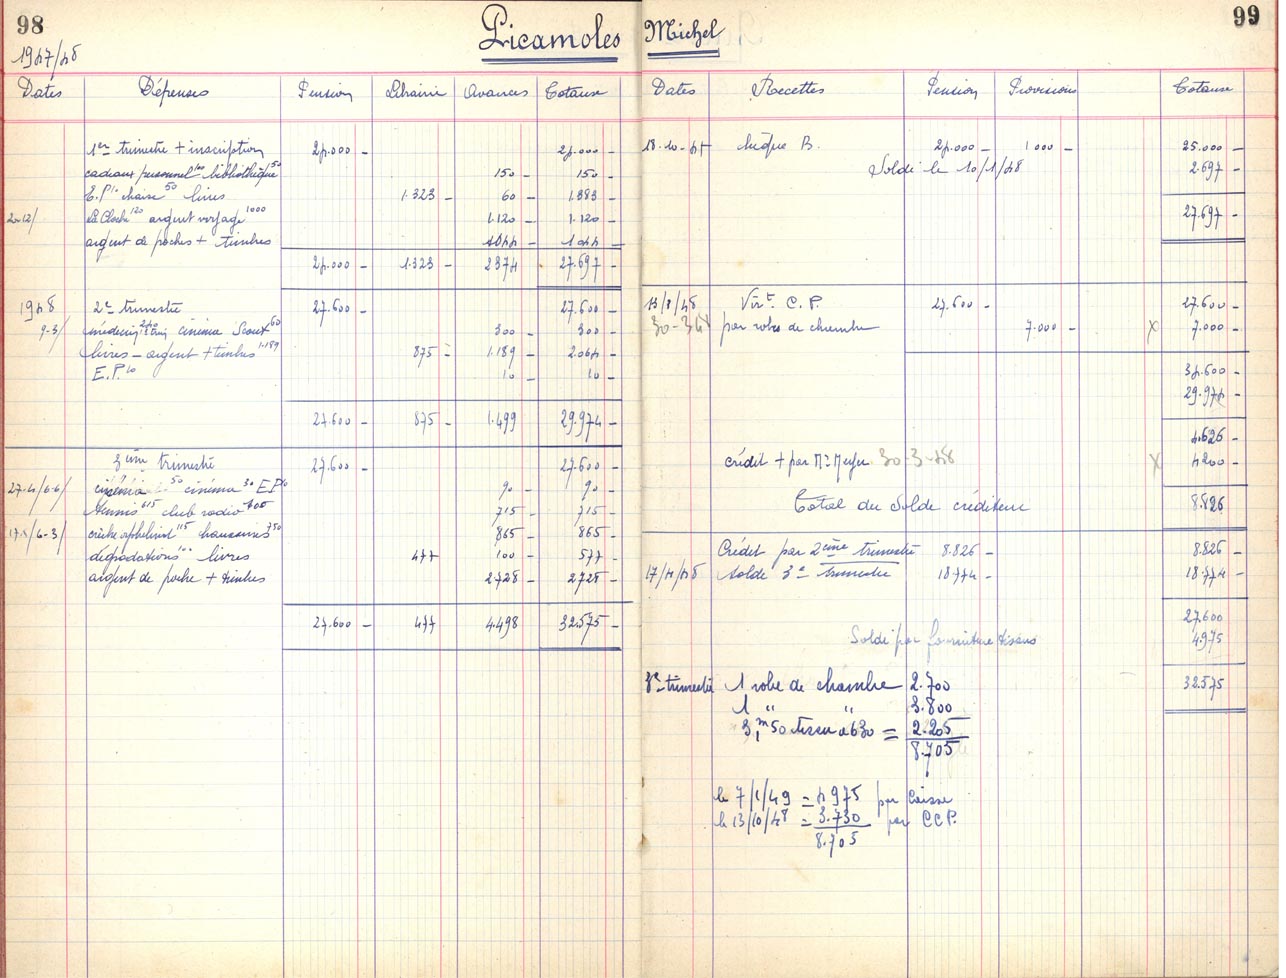 98
1947/48
Picamoles
Dates Dépenses Pension Librairie Avances Totaux
1er trimestre + inscription 24.000 - 24.000 -
cadeaux personnel 100 bibliothèque 50 150 - 150 -
E.P. 10 chaise 50 livres 1.323 60 - 1.383
20-12/ La Cloche 120 argent voyage 1000 1.120 - 1.120 -
argent de poches + timbres 1044 - 1044 -
24.000 - 1.323 - 2374 27.697 -
1948 2e trimestre 27.600 - 27.600 -
9-3/ médecin cinéma Scout 60 300 - 300 -
livres - argent + timbres 1.189 875 - 1.189 2.064 -
E.P. 10 10 - 10 -
27.600 - 875 - 1.499 29.974 -
3ème trimestre 27.600 - 27.600 -
27-4/6-6/ cinéma 50 cinéma 30 E.P. 10 90 - 90 -
tennis 615 club radio 100 715 - 715 -
/6-3/ crèche orphelinat 115 chaussures 750 865 - 865 -
dégradations 100 livres 477 100 - 577 -
argent de poche + timbres 2728 - 2728 -
27.600 - 477 4.498 32.575 -
99
Michel
Dates Recettes Pension Provisions Totaux
18-10-47 chèque B. 24.000 - 1000 - 25.000 -
Solde le 10/1/48 2.697 -
27.697 -
13/8/48 Virt C.P. 27.600 - 27.600 -
30-3-48 par robe de chambre 7.000 - X 7.000 -
34.600 -
29.974 -
4.626 -
crédit + par Me 30-3-48 X 4200 -
Total du Solde créditeur 8.826 -
Crédit par 2ème trimestre 8.826 - 8.826 -
17/4/48 solde 3e trimestre 18.774 - 18.774 -
27.600
4.975
Solde par fourniture tissus
3e trimestre 1 robe de chambre 2.700 32.575
1 " " 3.800
3,m50 tissu à 630 = 2.205
8.705
le 7/1/49 = 4975 par Caisse
le 13/10/48 = 3.730 par CCP.
8.705